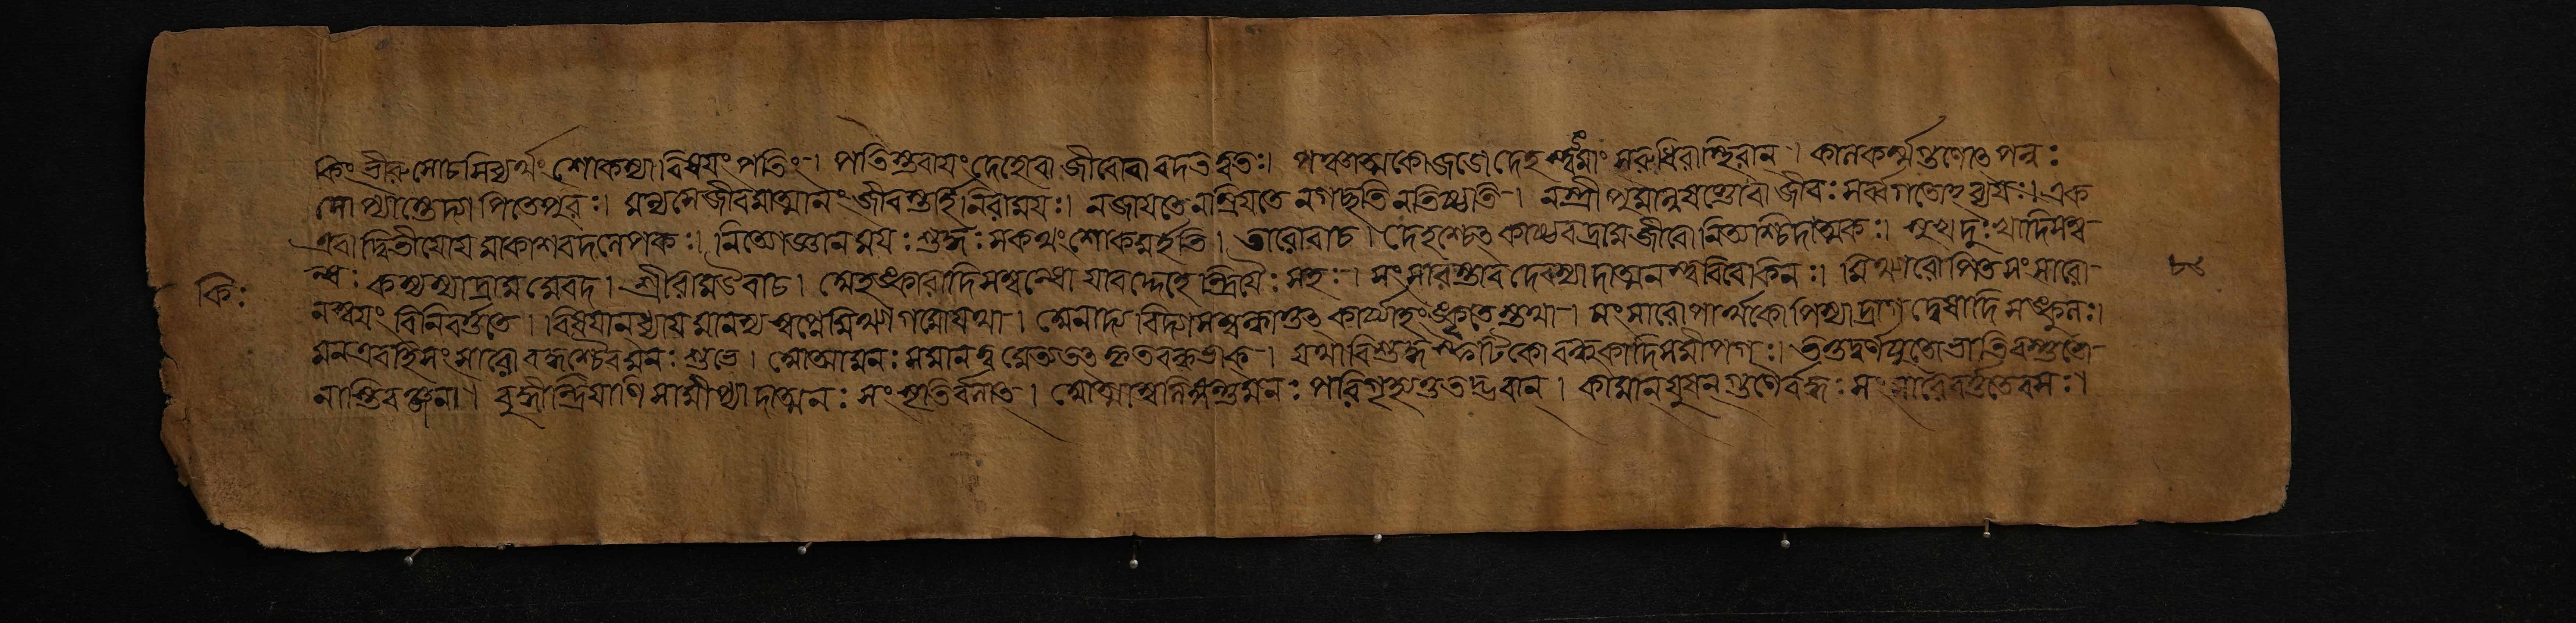 কিং ভীরু সোচসি ব্যর্থং শোকস্যা বিষয়ং পতিং । পতিস্তবায়ং দেহো বা জীবো বা বদ তত্ত্বতঃ । পঞ্চাত্মকো জড়ো দেহ স্ত্বঙ্মাং সরুধিরাস্থিবান । কালকর্ম্মগুণোৎপন্নঃ
সোপ্যাস্তেদ্যাপি তে পুরঃ । মন্যসে জীবমাত্মানং জীবস্তর্হি নিরাময়ঃ । ন জায়তে ন ম্রিয়তে ন গচ্ছতি ন তিষ্ঠতি । ন স্ত্রী পুমান্নু ষণ্ডো বা জীবঃ সর্ব্বগতোহব্যয়ঃ । এক
এবা দ্বিতীয়োয় মাকাশবদলেপকঃ । নিত্যো জ্ঞানময়ঃ শুদ্ধঃ স কথং শোকমর্হতি । তারোবাচ । দেহশ্চেৎ কাষ্ঠবদ্রাম জীবো নিত্যশ্চিদাত্মকঃ । সুখদুঃখাদিসম্ব-
কিঃ
ন্ধঃ কস্য স্যাদ্রাম মে বদ । শ্রীরামউবাচ । অহঙ্কারাদিসম্বন্ধো যাবদ্দেহেন্দ্রিয়ৈঃ সহঃ । সংসারস্তাবদেব স্যাদাত্মনস্ত্ববিবেকিনঃ । মিথ্যারোপিতসংসারো
৮৬
ন স্বয়ং বিনিবর্ত্ততে । বিষয়ান্ ধ্যায়মানস্য স্বপ্নে মিথ্যাগমো যথা । অনাদ্যবিদ্যাসম্বন্ধাত্তৎ কার্য্যাহংকৃতেস্তথা । সংসারোপার্থকোপি স্যাদ্রাগদ্বেষাদিসঙ্কুলঃ ।
মন এব হি সংসারো বন্ধশ্চৈব মনঃ শুভে । আত্মা মনঃ সমানত্বমেত্য তদ্গতবন্ধভাক্ । যথা বিশুদ্ধ স্ফটিকো বক্ষকাদিসমীপগঃ । তত্তদ্বর্ণযুতো ভাতি বস্তুতো
নাস্তি রঞ্জনা । বুদ্ধীন্দ্রিয়াণি সামীপ্যাদাত্মনঃ সংসৃতির্বলাৎ । আত্মা স্বলিঙ্গন্তু মনঃ পরিগৃহ্য তদুদ্ভবান । কামান্ জুষন্ গুণৈর্বদ্ধঃ সংসারে বর্ত্ততেবসঃ ।